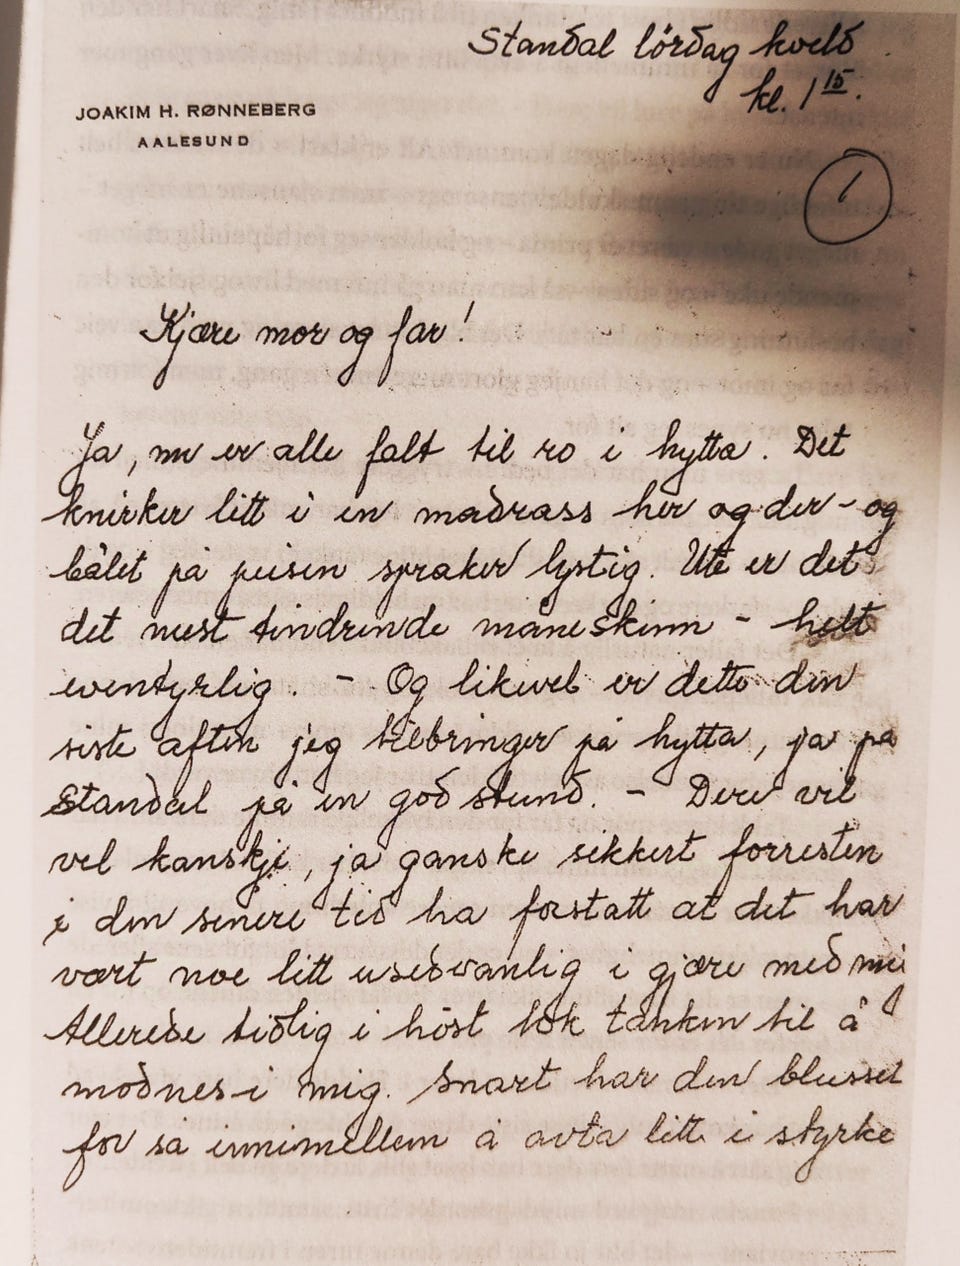 Standal lördag kveld.
kl. 1 15.
JOAKIM H. RØNNEBERG
AALESUND
1
Kjære mor og far!
Ja, nu er alle falt til ro i hytta. Det
knirker litt i en madrass her og der - og
bålet på peisen spraker lystig. Ute er det
det mest tindrende måneskinn - helt
eventyrlig. - Og likevel er dette den
siste aften jeg tilbringer på hytta, ja på
Standal på en god stund. - Dere vil
vel kanskje, ja ganske sikkert forresten
i den senere tid ha forstått at det har
vært noe litt usedvanlig i gjære med mig
Allerede tidlig i höst tok tanken til å
modnes i mig. Snart har den blusset
for så innimellem å avta litt i styrke